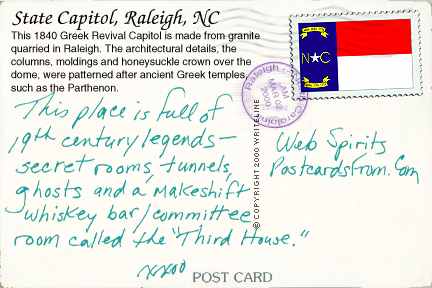 State Capitol, Raleigh, NC
This 1840 Greek Revival Capitol is made from granite
quarried in Raleigh. The architectural details, the
columns, moldings and honeysuckle crown over the
dome, were patterned after ancient Greek temples,
such as the Parthenon.
This place is full of
19th century legends—
secret rooms, tunnels,
ghosts and a makeshift
whiskey bar/committee
room called the "Third House."
xxoo
POST CARD
© COPYRIGHT 2000 WRITELINE
Raleigh
AM
N C
Web Spirits
PostcardsFrom.Com